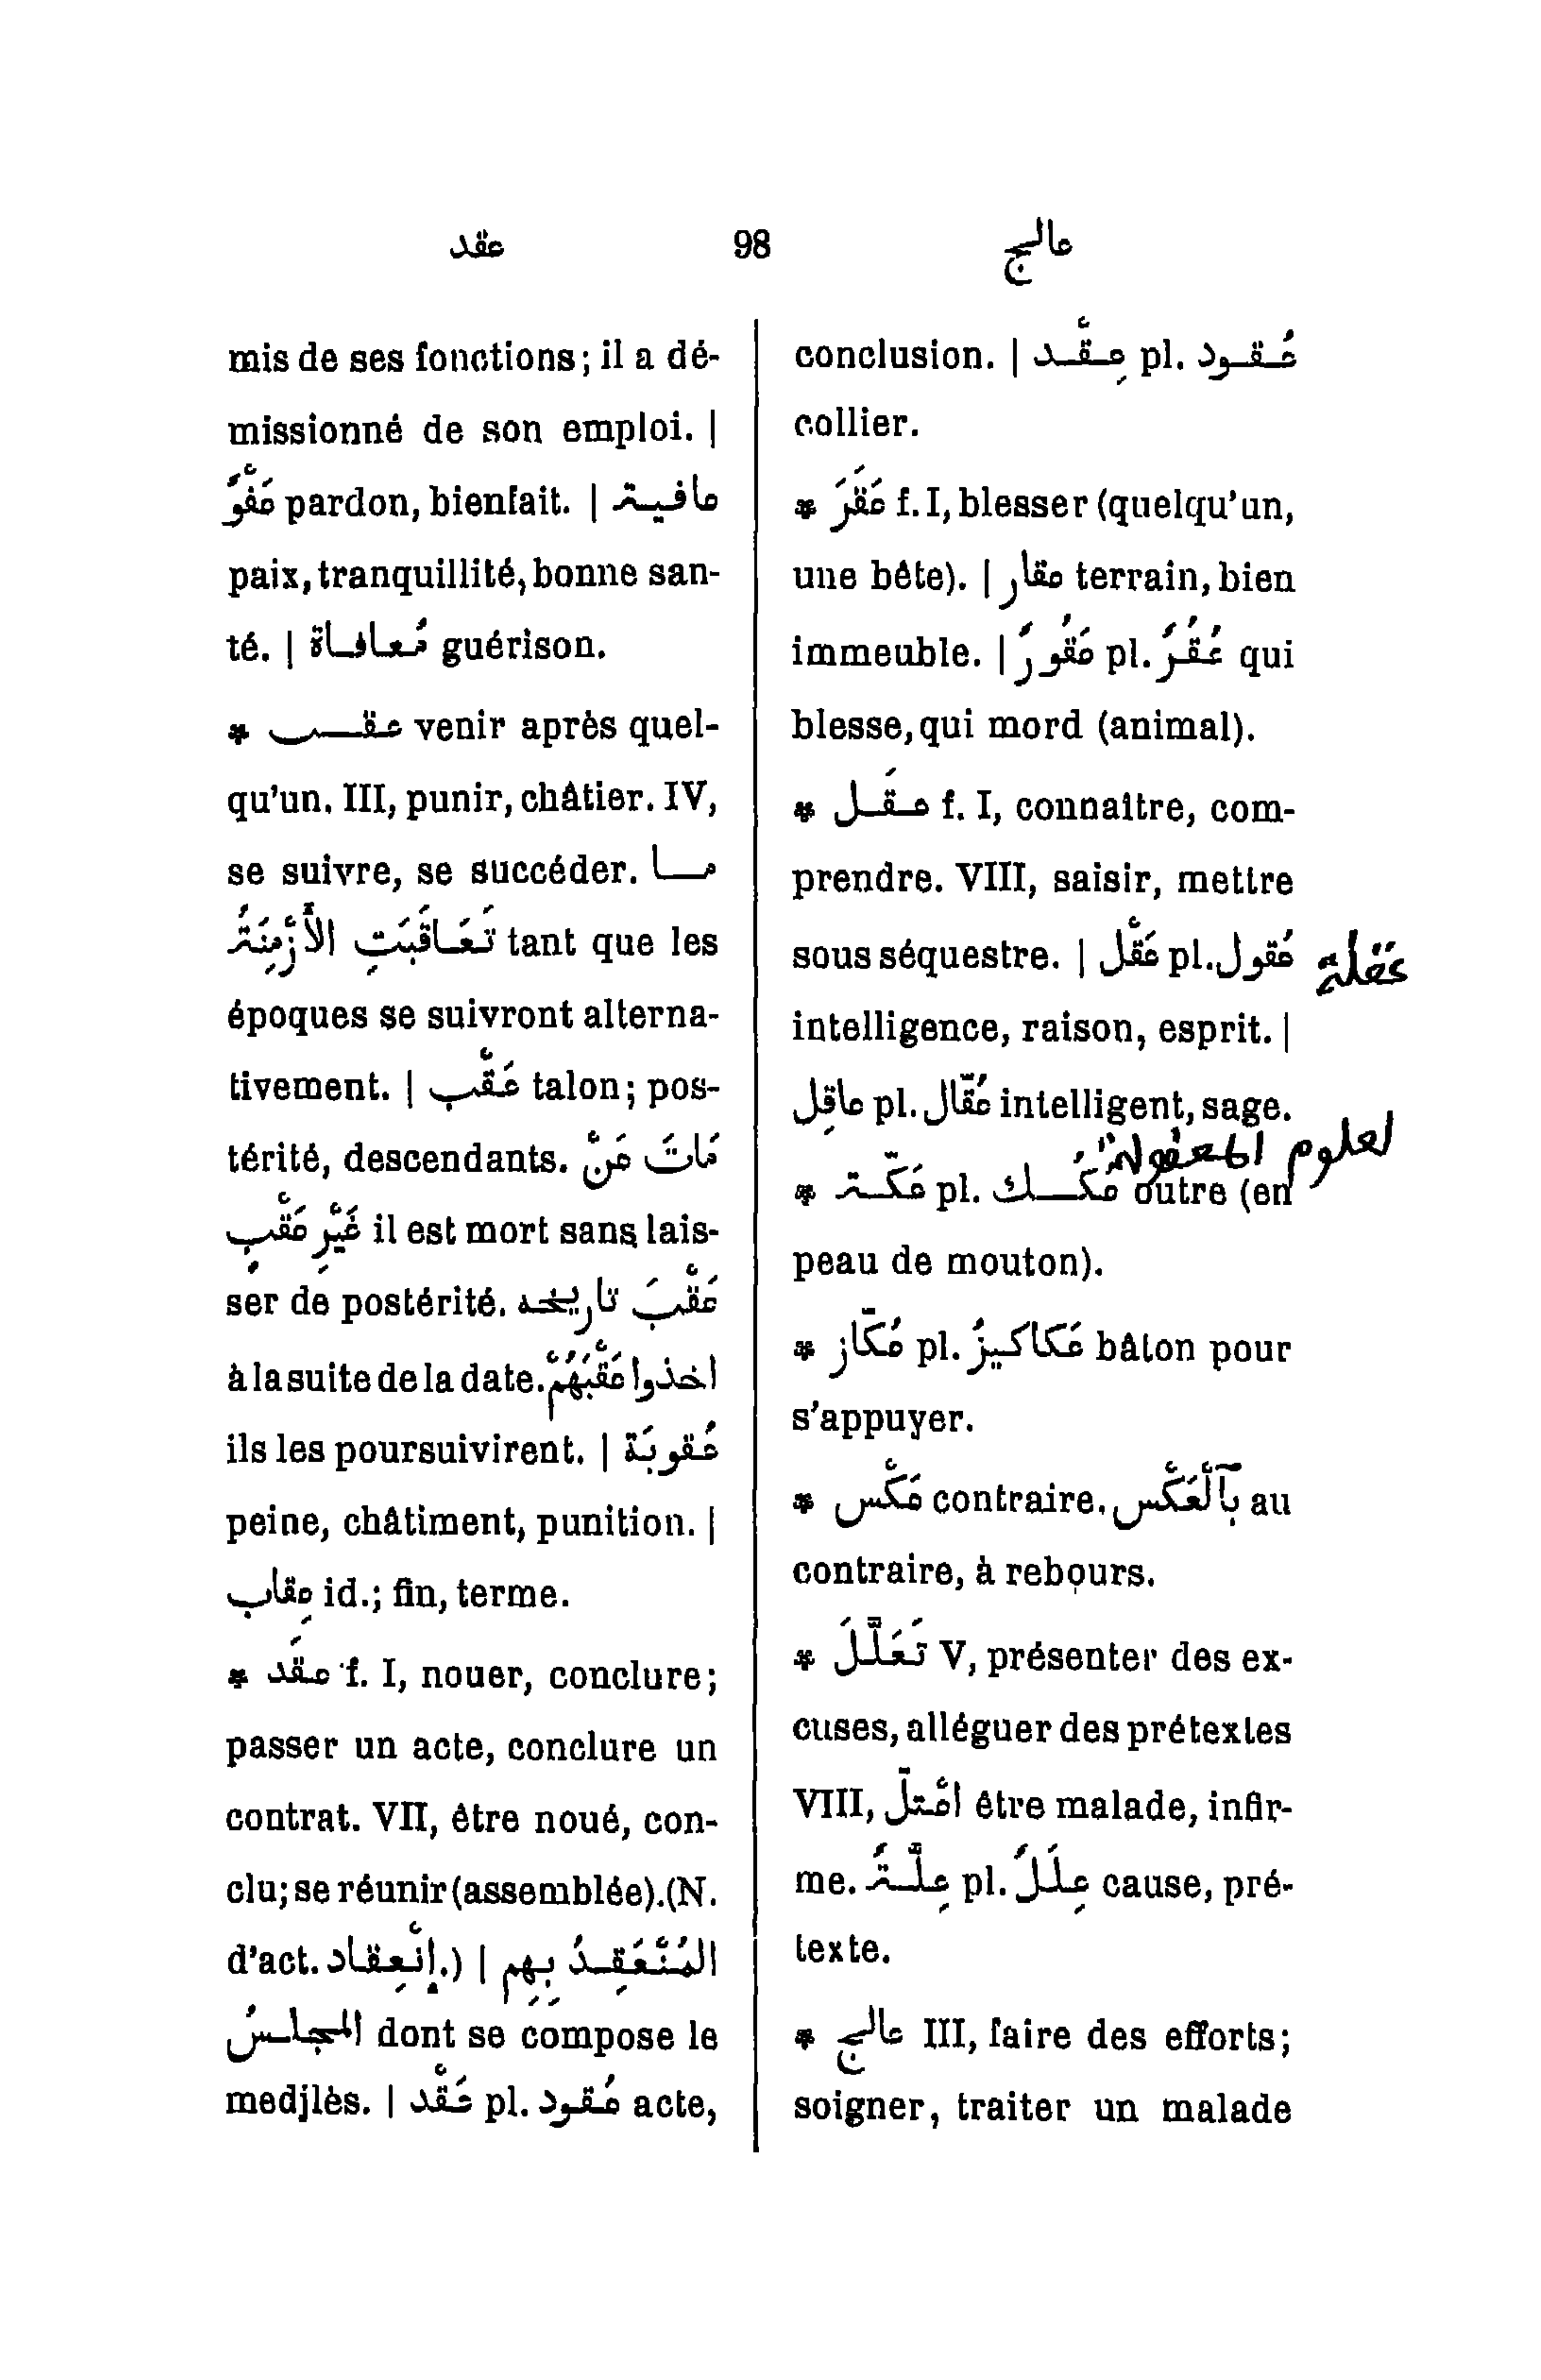 عقد 98 عالج
mis de ses fonctions; il a dé-
missionné de son emploi. |
عَفْوٌ pardon, bienfait. | عافية
paix, tranquillité, bonne san-
té. | مُعافاة guérison.
* عقب venir après quel-
qu'un. III, punir, châtier. IV,
se suivre, se succéder. ما
تَعَاقَبَتِ الأَزْمِنَةُ tant que les
époques se suivront alterna-
tivement. | عَقْب talon; pos-
térité, descendants. مَاتَ عَنْ
غَيْرِ عَقْبٍ il est mort sans lais-
ser de postérité. عَقْبَ تاريخه
à la suite de la date. اخذوا عَقْبَهُمْ
ils les poursuivirent. | عُقوبَة
peine, châtiment, punition. |
عِقاب id.; fin, terme.
* عقَد f. I, nouer, conclure;
passer un acte, conclure un
contrat. VII, être noué, con-
clu; se réunir (assemblée). (N.
d'act. إنْعِقاد.) | المُنْعَقِدُ بِهِم
المجلسُ dont se compose le
medjlès. | عَقْد pl. عُقود acte,
conclusion. | عِقْد pl. عُقود
collier.
* عَقَرَ f. I, blesser (quelqu'un,
une bête). | عقار terrain, bien
immeuble. | عَقُورٌ pl. عُقُرٌ qui
blesse, qui mord (animal).
* عقَل f. I, connaître, com-
prendre. VIII, saisir, mettre
sous séquestre. | عَقْل pl. عُقول عقلة
intelligence, raison, esprit. |
عاقِل pl. عُقّال intelligent, sage.
لعلوم المعقولة
* عَكّة pl. عُكَك outre (en
peau de mouton).
* عُكّاز pl. عَكاكيزُ bâton pour
s'appuyer.
* عَكْس contraire. بِآلْعَكْس au
contraire, à rebours.
* تَعَلَّلَ V, présenter des ex-
cuses, alléguer des prétextes
VIII, اعْتلّ être malade, infir-
me. عِلَّةٌ pl. عِلَلٌ cause, pré-
texte.
* عالج III, faire des efforts;
soigner, traiter un malade